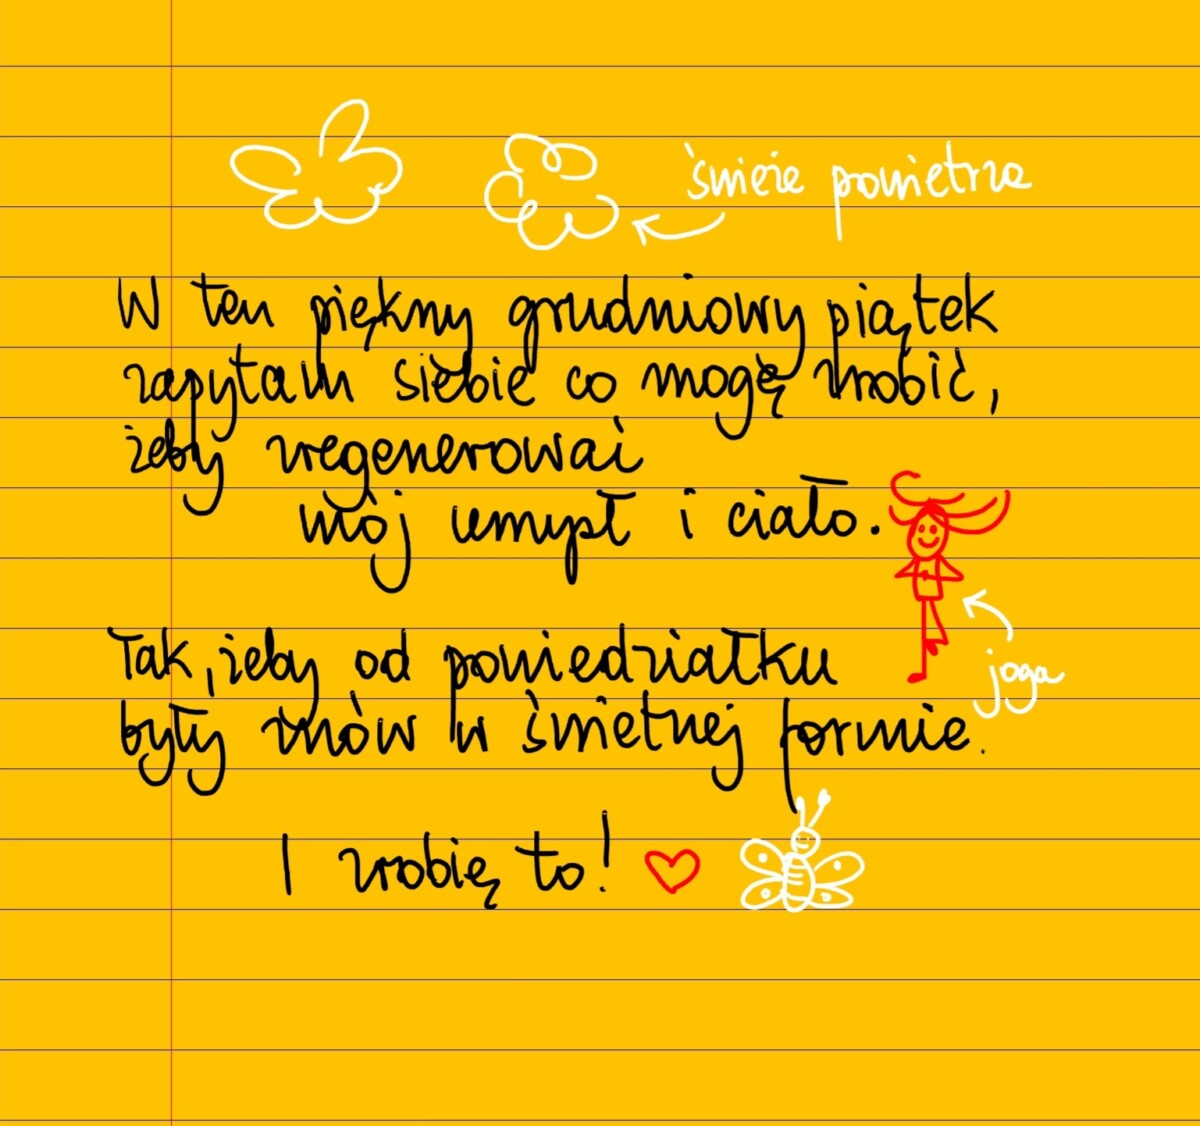 świeże powietrze
W ten piękny grudniowy piątek
zapytam siebie co mogę zrobić,
żeby zregenerować
mój umysł i ciało.
joga
Tak, żeby od poniedziałku
były znów w świetnej formie.
I zrobię to!